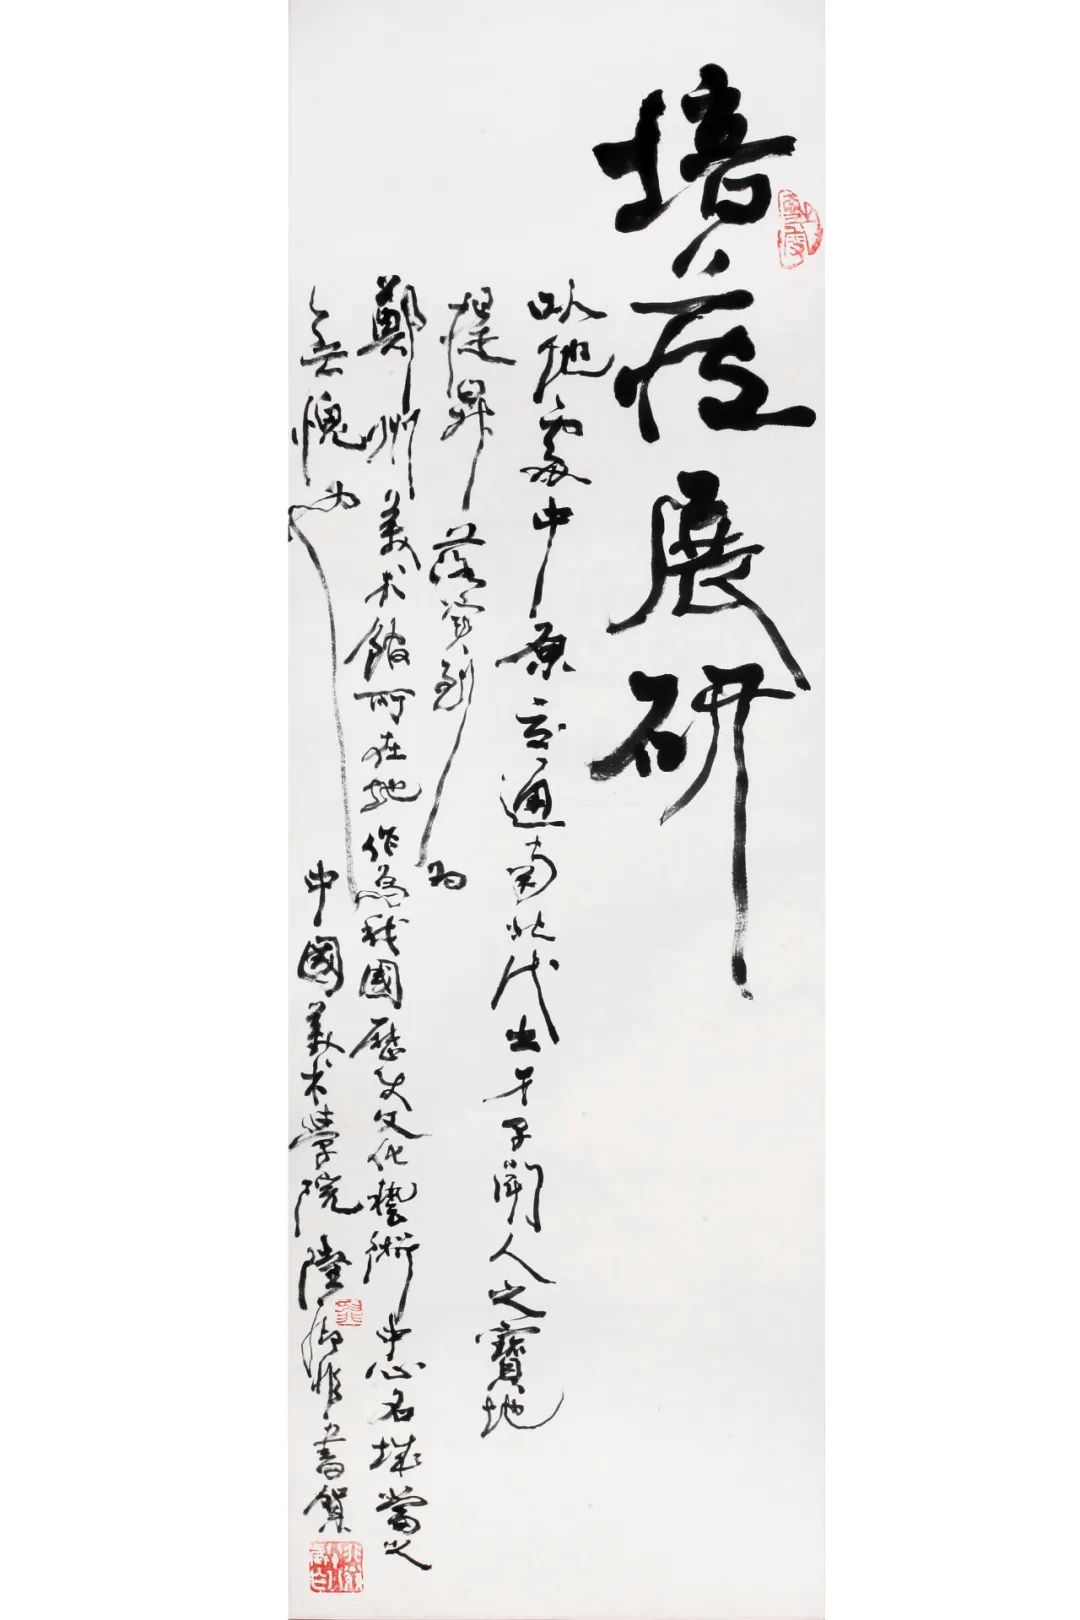 培藏展研
地處中原交通南北代出才子聞人之寶地
提昇落實到為
鄭州美术館所在地作為我國歷史文化藝術中心名城當之
無愧也
中國美术學院書賀